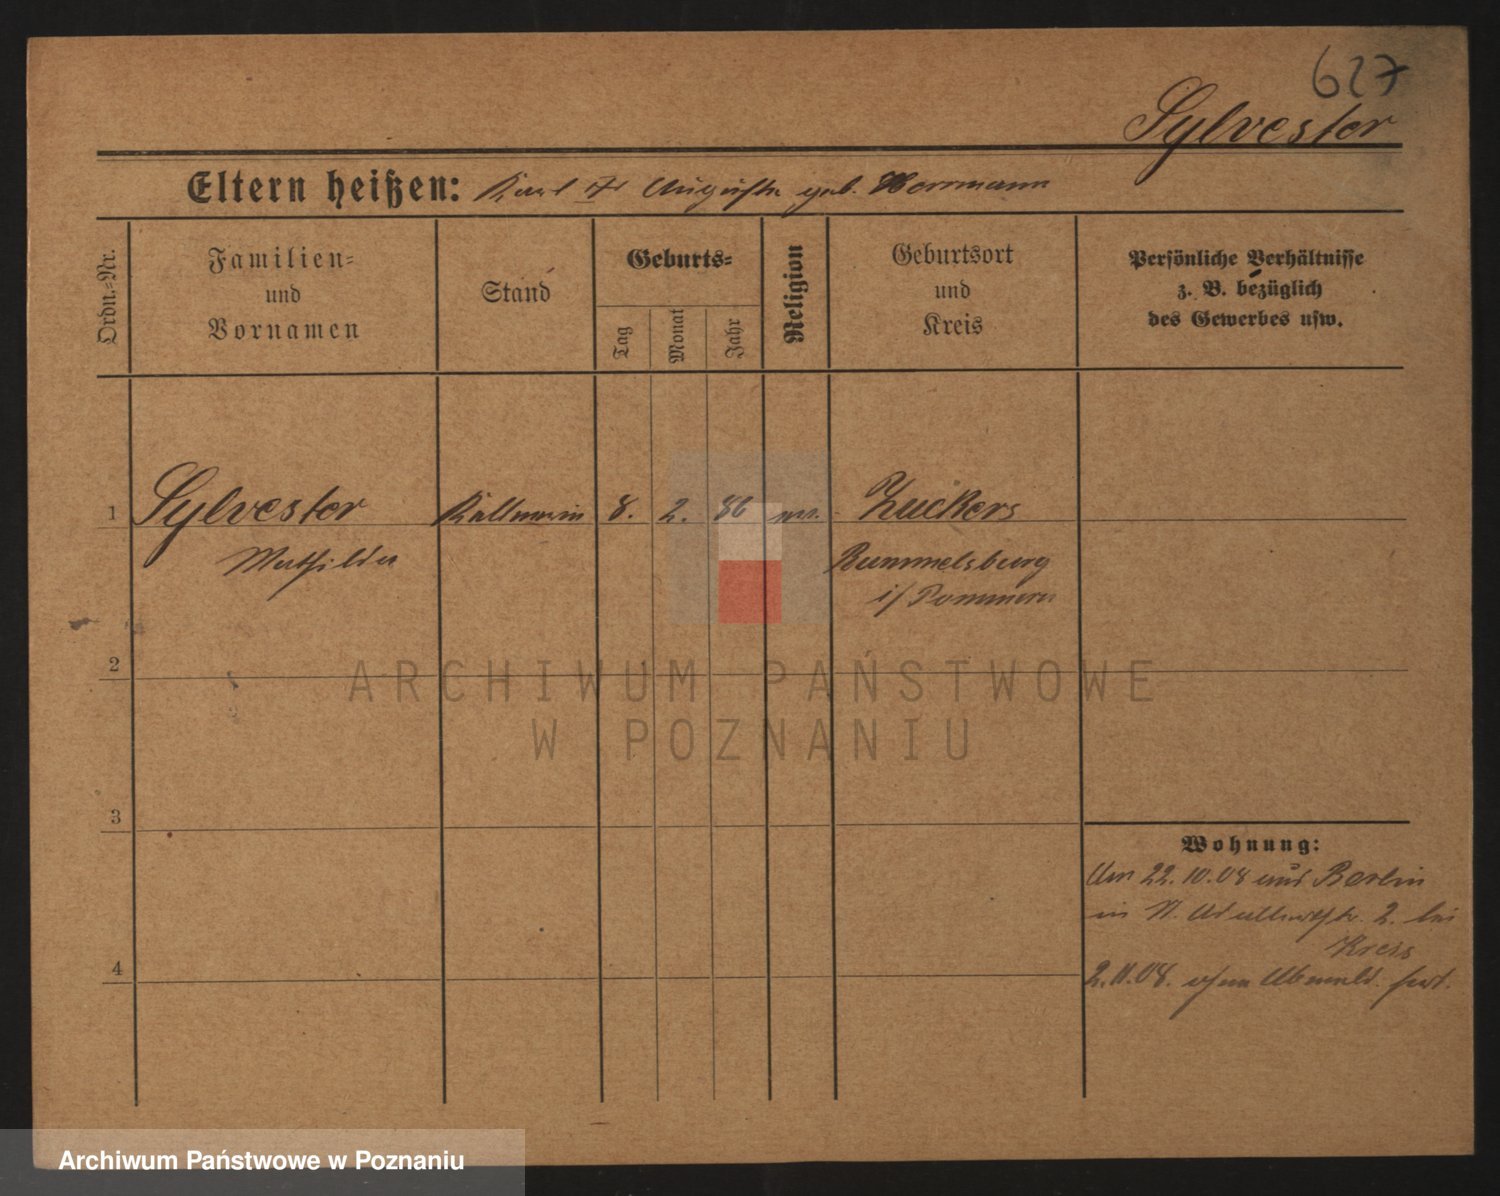 627
Sylvester
Eltern heißen: Karl u Auguste geb. Herrmann
Ordn.-Nr.
Familien-
und
Vornamen
Stand
Geburts-
Tag
Monat
Jahr
Religion
Geburtsort
und
Kreis
Persönliche Verhältnisse
z. B. bezüglich
des Gewerbes usw.
1 Sylvester Kellnerin 8. 2. 86 Zuckers
Mathilde Rummelsburg
i/ Pommern
2
3
4
Wohnung:
Am 22.10.08 aus Berlin
in 2. bei
Kress
2.11.08. ohne Abmeld. fort.
ARCHIWUM PAŃSTWOWE
W POZNANIU
Archiwum Państwowe w Poznaniu